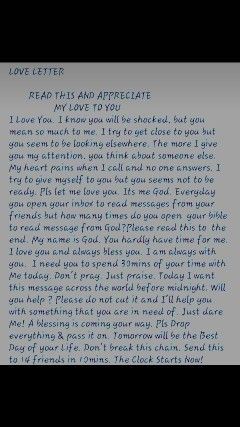 LOVE LETTER
READ THIS AND APPRECIATE
MY LOVE TO YOU
I Love You. I know you will be shocked, but you
mean so much to me. I try to get close to you but
you seem to be looking elsewhere. The more I give
you my attention, you think about someone else.
My heart pains when I call and no one answers, I
try to give myself to you but you seems not to be
ready. Pls let me love you. Its me God. Everyday
you open your inbox to read messages from your
friends but how many times do you open your bible
to read message from God?Please read this to the
end. My name is God. You hardly have time for me.
I love you and always bless you. I am always with
you. I need you to spend 30mins of your time with
Me today. Don't pray. Just praise. Today I want
this message across the world before midnight. Will
you help ? Please do not cut it and I'll help you
with something that you are in need of. Just dare
Me! A blessing is coming your way. Pls Drop
everything & pass it on. Tomorrow will be the Best
Day of your Life. Don't break this chain. Send this
to 14 friends in 10mins. The Clock Starts Now!